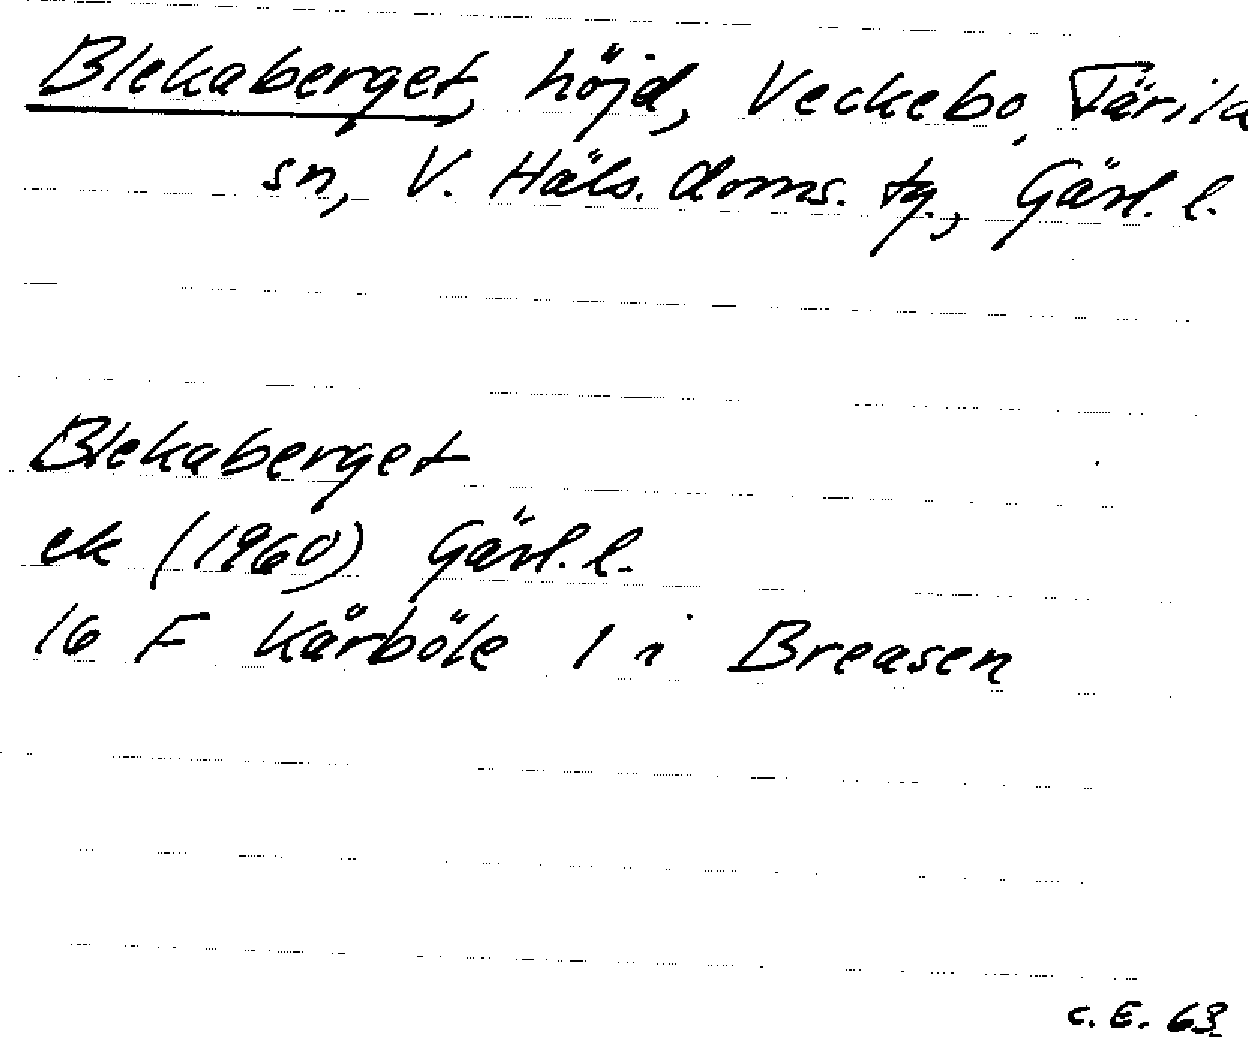 Blekaberget, höjd, Veckebo, Färila
sn, V. Häls. doms. tg., Gävl. l.
Blekaberget
ek (1960) Gävl. l.
16 F Kårböle 1 i Breasen
C. E. 63